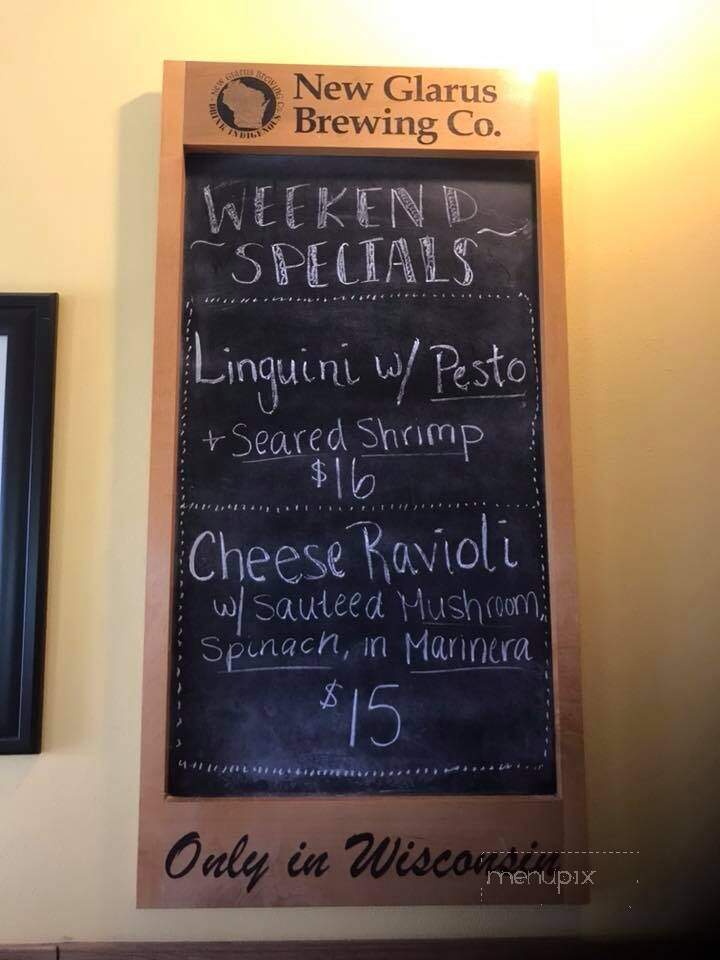 NEW GLARUS BREWING CO.
DRINK INDIGENOUS
New Glarus
Brewing Co.
WEEKEND
~ SPECIALS ~
Linguini w/ Pesto
+ Seared Shrimp
$16
Cheese Ravioli
w/ Sauteed Mushroom,
Spinach, in Marinera
$15
Only in Wisconsin
menupix